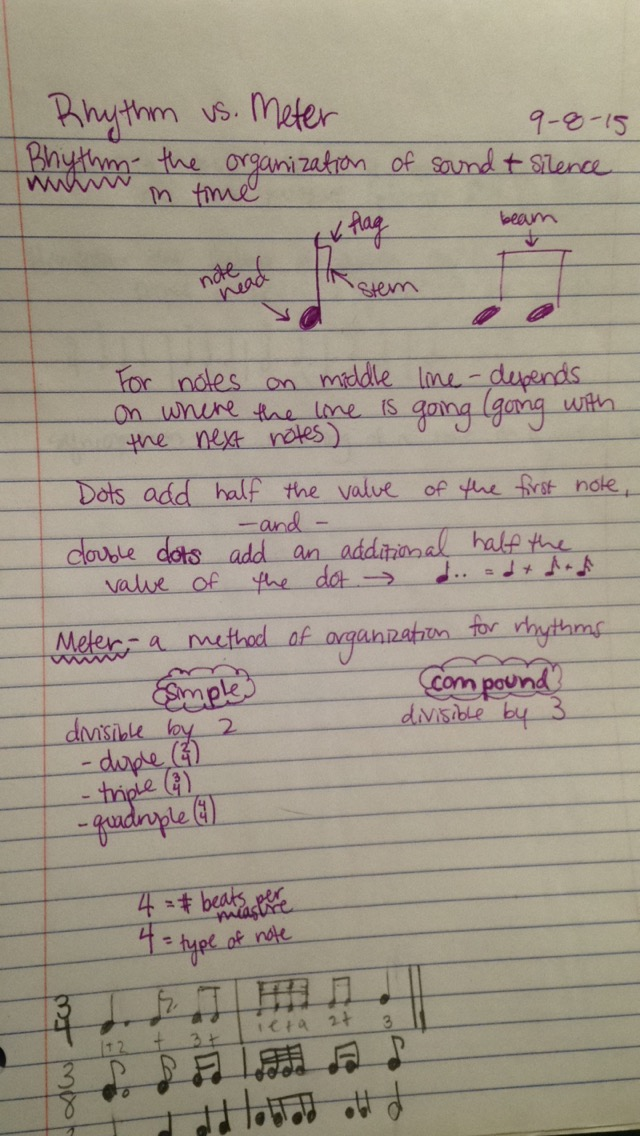 Rhythm vs. Meter
9-8-15
Rhythm - the organization of sound + silence
in time
flag
beam
note head
stem
For notes on middle line - depends
on where the line is going (going with
the next notes)
Dots add half the value of the first note,
- and -
double dots add an additional half the
value of the dot → ♩.. = ♩ + ♪ + 𝅘𝅥𝅯
Meter - a method of organization for rhythms
simple
compound
divisible by 2
divisible by 3
- duple (2/4)
- triple (3/4)
- quadruple (4/4)
4 = # beats per
measure
4 = type of note
3
4
1+2 + 3+ 1e+a 2+ 3
3
8